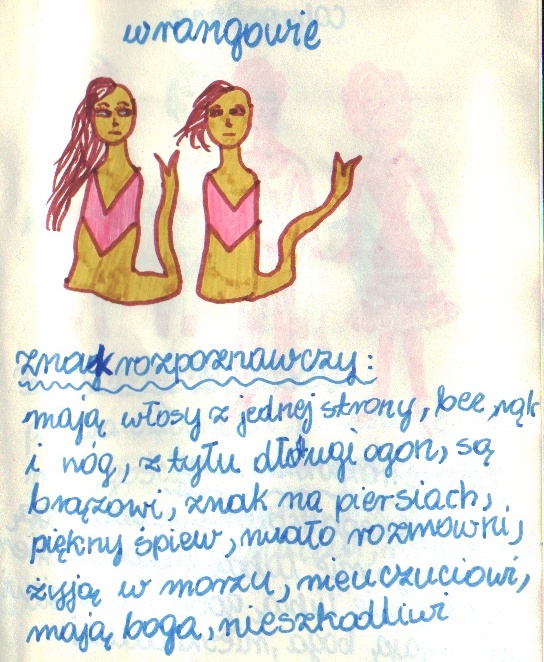 wrangowie
znak rozpoznawczy:
mają włosy z jednej strony, bez rąk
i nóg, z tyłu długi ogon, są
brązowi, znak na piersiach,
piękny śpiew, mało rozmowni,
żyją w morzu, nieuczuciowi,
mają boga, nieszkodliwi